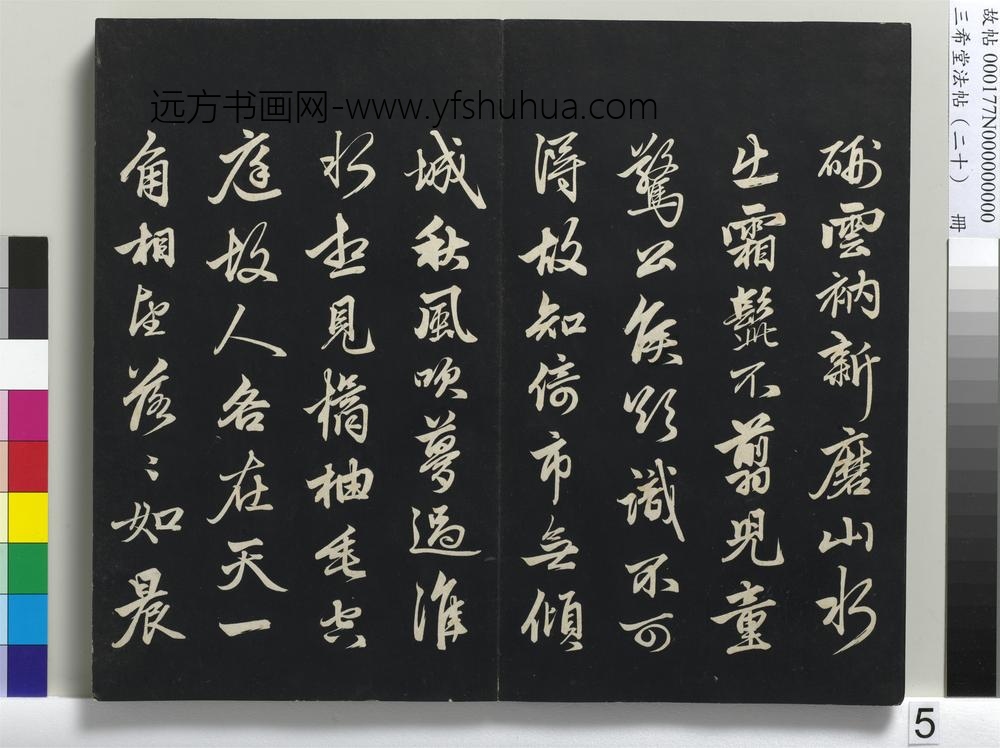 硎雲衲新磨山水
出霜髭不翦兒童
驚公侯欲識不可
得故知倚市無傾
城秋風吹夢過淮
水想見橘柚垂空
庭故人各在天一
角相望落〻如晨
远方书画网-www.yfshuhua.com
故帖 000177N000000000
三希堂法帖（二十） 册
5